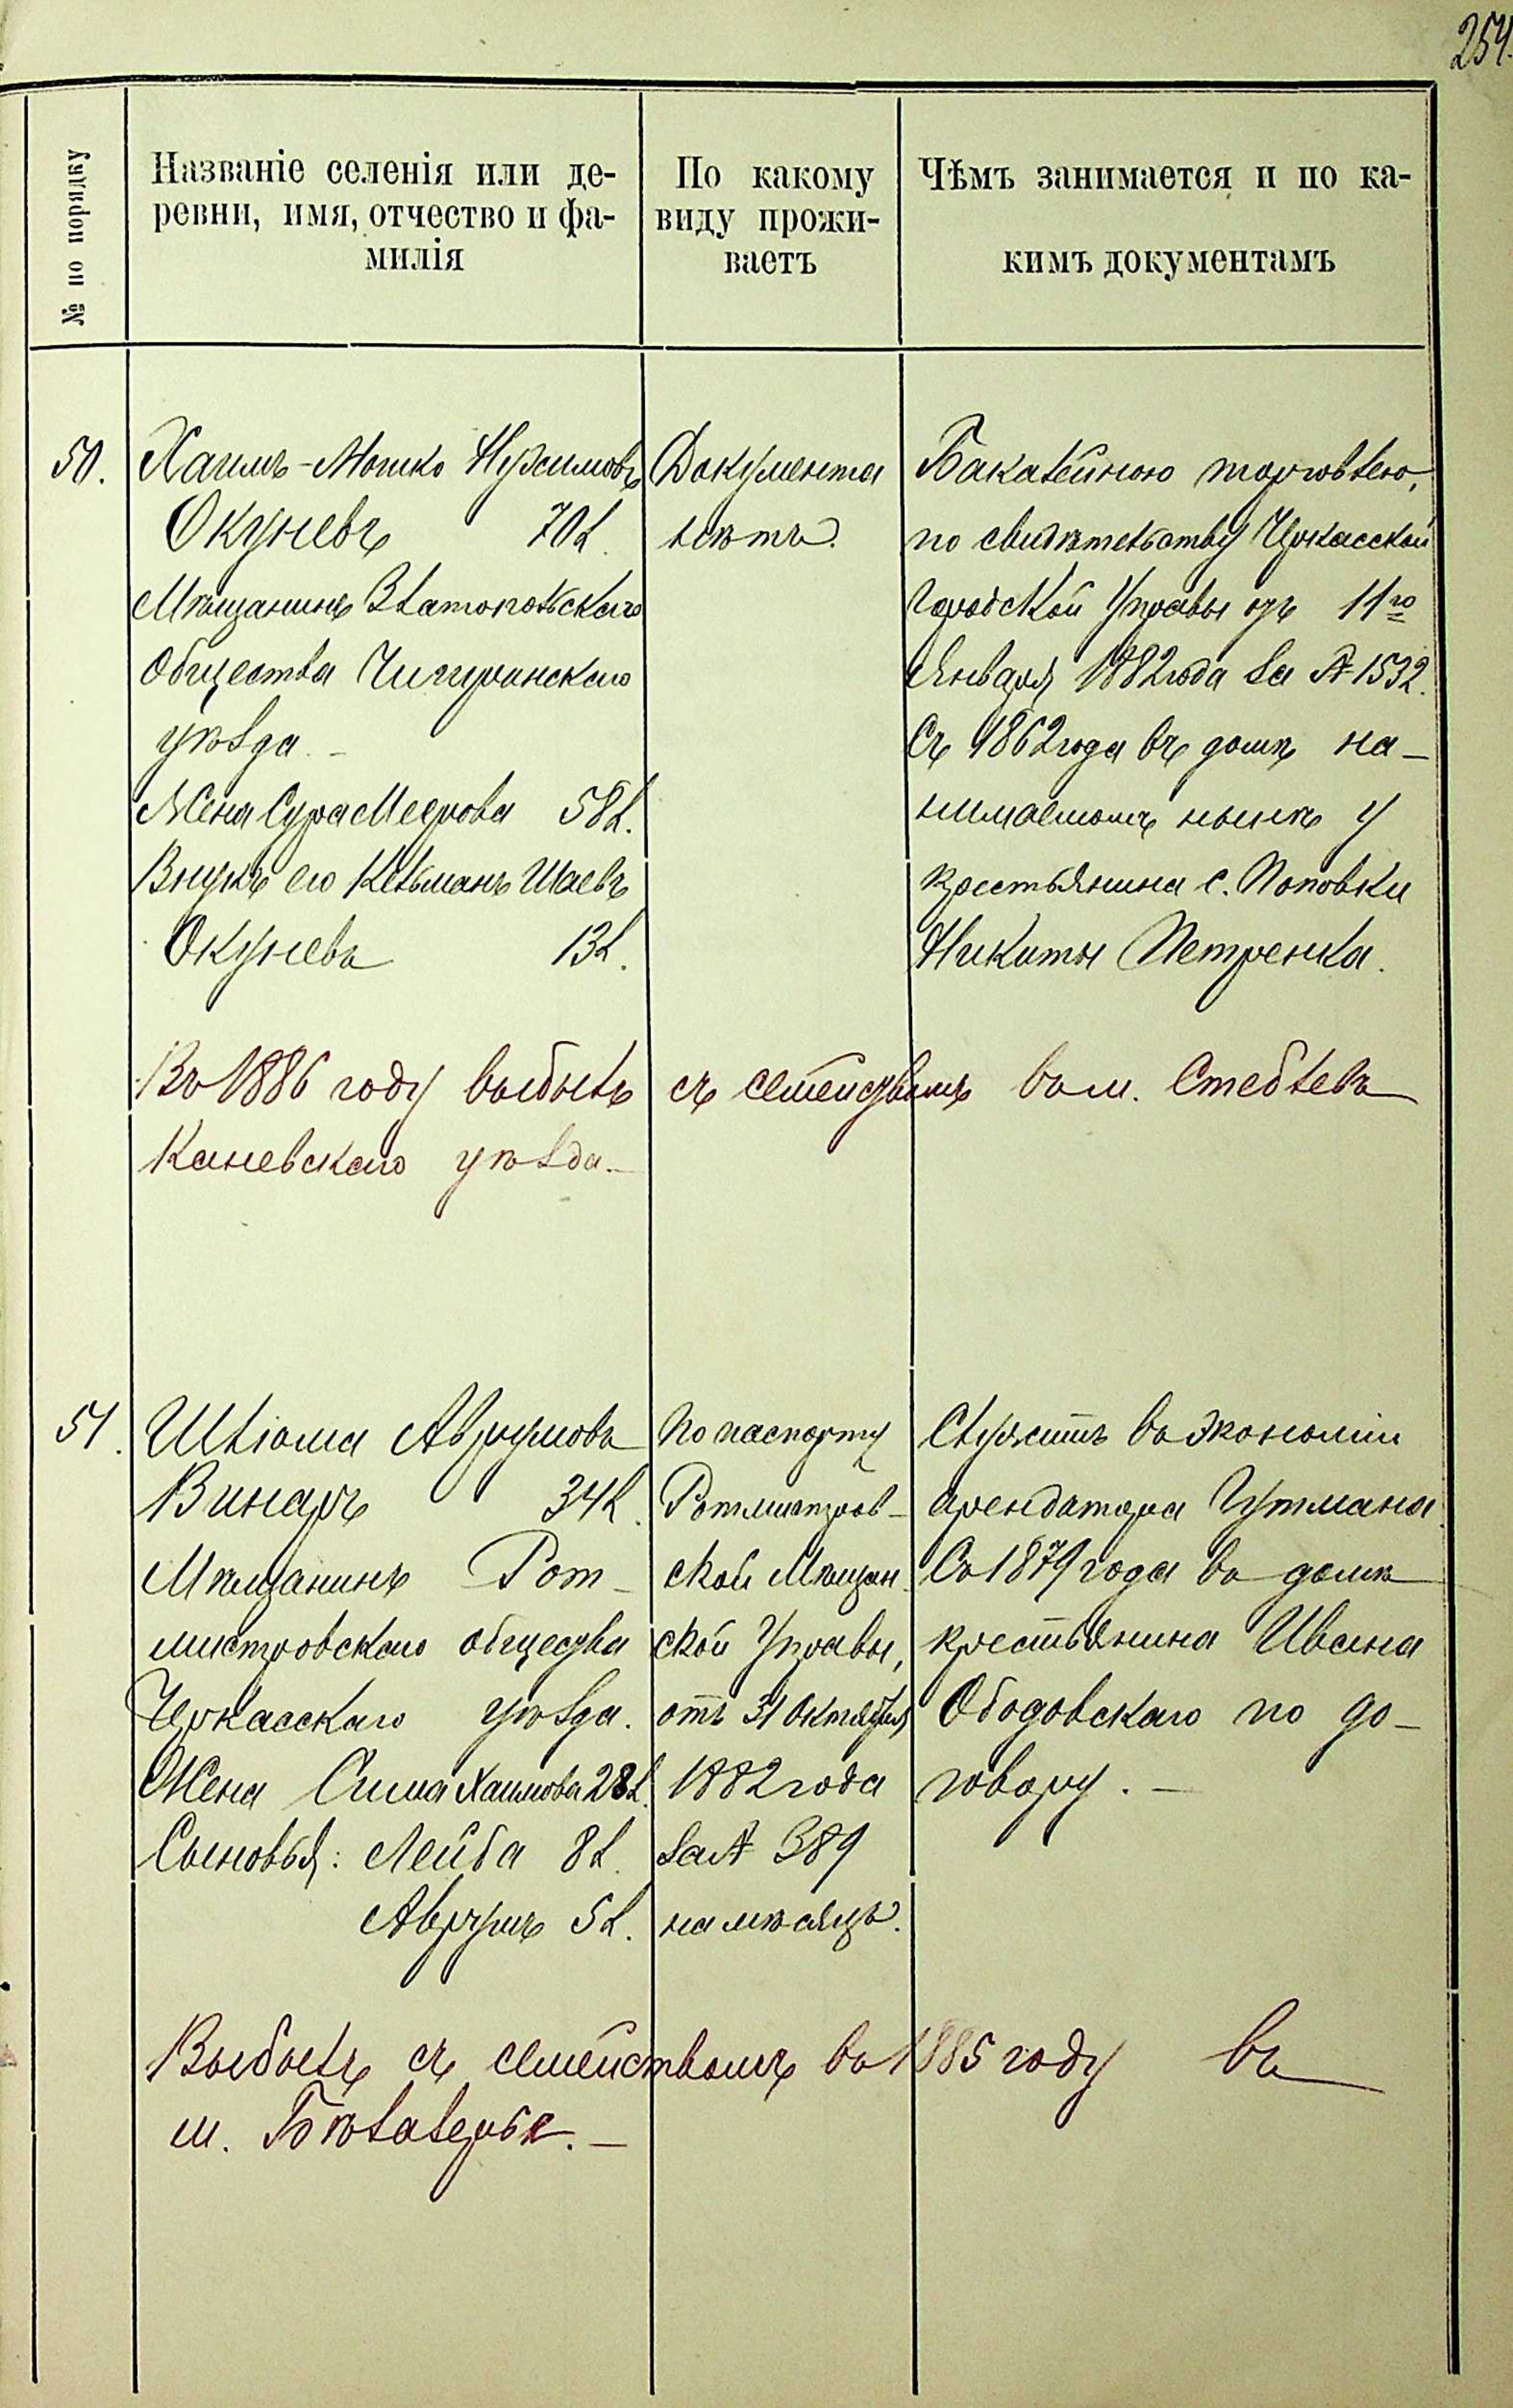 254.
№ по порядку
Названіе селенія или де-
ревни, имя, отчество и фа-
милія
По какому
виду прожи-
ваетъ
Чѣмъ занимается и по ка-
кимъ документамъ
50.
Хаимъ-Мошко Нухимовъ
Окуневъ 70 л.
Мѣщанинъ Златопольскаго
Общества Чигиринскаго
уѣзда. –
Жена Сура Меерова 58 л.
Внукъ его Кельманъ Шаевъ
Окуневъ 13 л.
Документа
нѣтъ.
Бакалейною торговлею,
по свидѣтельству Черкасской
Городской Управы отъ 11го
Января 1882 года за № 1532.
Съ 1862 года въ домѣ на-
нимаемомъ нынѣ у
крестьянина с. Поповки
Никиты Петренка.
Въ 1886 году выбылъ съ семействомъ въ м. Стеблевъ
Каневскаго уѣзда. –
51.
Шлiома Аврумовъ
Винаръ 34 л.
Мѣщанинъ Рот-
мистровскаго общества
Черкасскаго уѣзда.
Жена Сима Хаимова 28 л.
Сыновья: Лейба 8 л.
Аврумъ 5 л.
По паспорту
Ротмистров-
ской Мѣщан-
ской Управы,
отъ 31 Октября
1882 года
за № 389
на мѣсяцъ.
Служитъ въ экономіи
арендатора Гутмана.
Съ 1879 года въ домѣ
крестьянина Ивана
Ободовскаго по до-
говору. –
Выбылъ съ семействомъ въ 1885 году въ
м. Бѣлозерье. –